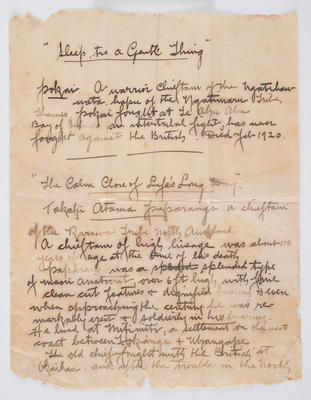 "Sleep, tis a Gentle Thing"
pokai. A warrior Chieftain of the Ngatihau
wata hapu of the Ngatimaru Tribe,
Thames. pokai fought at Te Ahu Ahu
Bay of an intertribal fight, has never
fought against the British. Died Feb 1920.
"The Calm Close of Life's Long Day."
Takahi Atama paparangi a chieftain
of the Rarawa Tribe North Auckland.
A chieftain of high lineage was about 100
years of age at the time of his death
paparangi was a splendid type
of maori aristocrat, over 6ft high, with fine
clean cut features & dignified bearing & even
when approaching the century he was re-
markably erect & soldierly in his bearing.
He lived at Mitimiti, a settlement on the west
coast between Hokianga & Whangape.
The old chief fought with the British at
Okaihau, and after the troubles in the North,